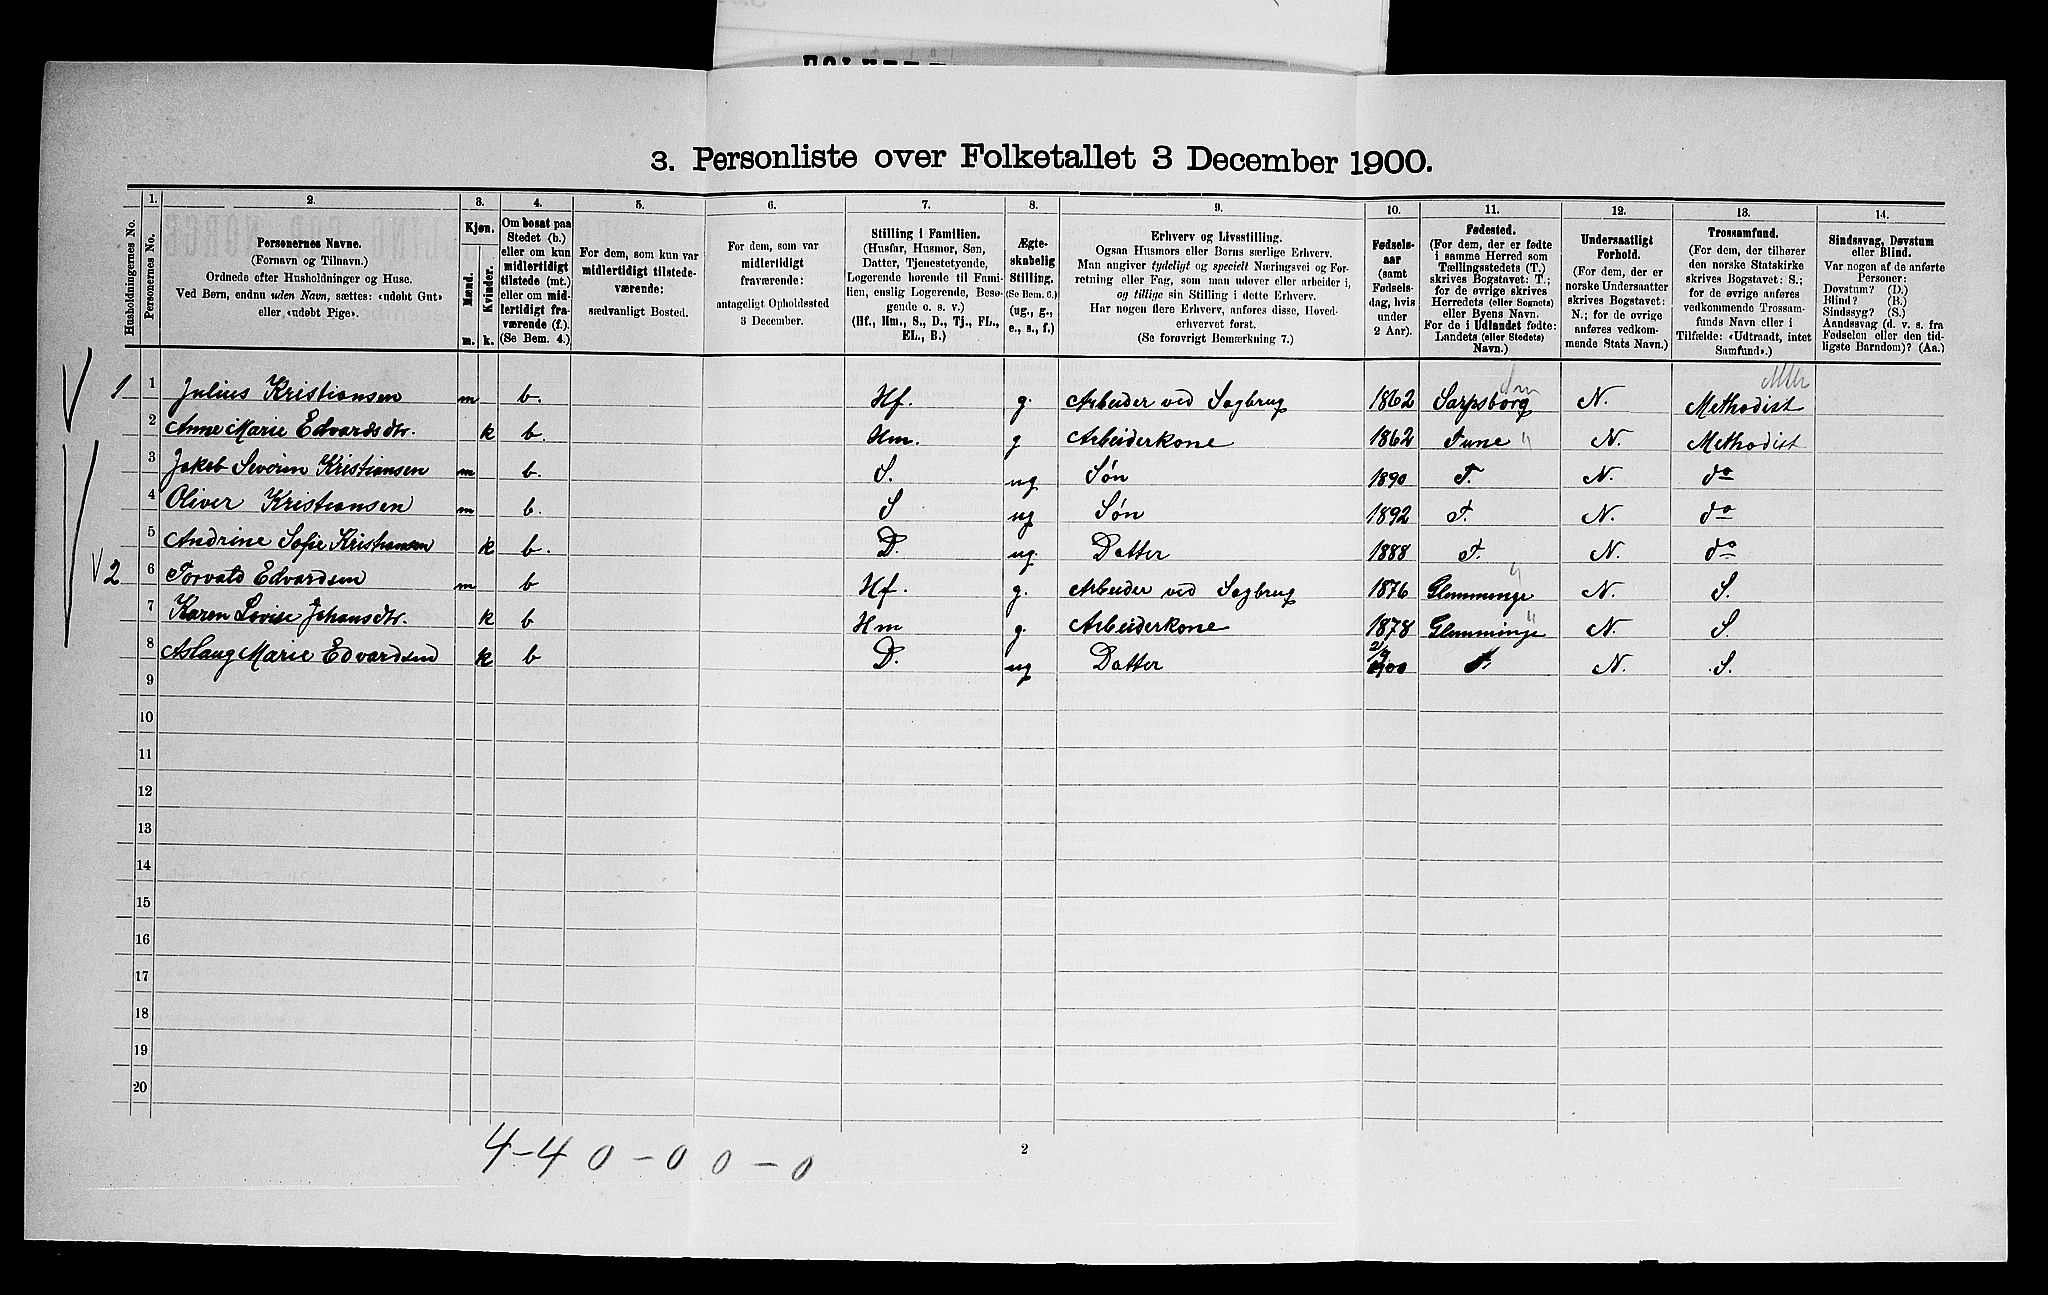 3. Personliste over Folketallet 3 December 1900.
1. 2. 3. 4. 5. 6. 7. 8. 9. 10. 11. 12. 13. 14.
Husholdningernes No.
Personernes No.
Personernes Navne.
(Fornavn og Tilnavn.)
Ordnede efter Husholdninger og Huse.
Ved Børn, endnu uden Navn, sættes: «udøbt Gut»
eller «udøbt Pige».
Kjøn.
Mænd.
Kvinder.
m. k.
Om bosat paa
Stedet (b.)
eller om kun
midlertidigt
tilstede (mt.)
eller om mid-
lertidigt fra-
værende (f.).
(Se Bem. 4.)
For dem, som kun var
midlertidigt tilstede-
værende:
sædvanligt Bosted.
For dem, som var
midlertidigt
fraværende:
antageligt Opholdssted
3 December.
Stilling i Familien.
(Husfar, Husmor, Søn,
Datter, Tjenestetyende,
Logerende hørende til Fami-
lien, enslig Logerende, Besø-
gende o. s. v.)
(Hf., Hm., S., D., Tj., FL.,
EL., B.)
Ægte-
skabelig
Stilling.
(Se Bem. 6.)
(ug., g.,
e., s., f.)
Erhverv og Livsstilling.
Ogsaa Husmors eller Børns særlige Erhverv.
Man angiver tydeligt og specielt Næringsvei og For-
retning eller Fag, som man udøver eller arbeider i,
og tillige sin Stilling i dette Erhverv.
Har nogen flere Erhverv, anføres disse, Hoved-
erhvervet først.
(Se forøvrigt Bemærkning 7.)
Fødsels-
aar
(samt
Fødsels-
dag, hvis
under
2 Aar).
Fødested.
(For dem, der er fødte
i samme Herred som
Tællingsstedets (T.)
skrives Bogstavet: T.;
for de øvrige skrives
Herredets (eller Sognets)
eller Byens Navn.
For de i Udlandet fødte:
Landets (eller Stedets)
Navn.)
Undersaatligt
Forhold.
(For dem, der er
norske Undersaatter
skrives Bogstavet:
N.; for de øvrige
anføres vedkom-
mende Stats Navn.)
Trossamfund.
(For dem, der tilhører
den norske Statskirke
skrives Bogstavet: S.;
for de øvrige anføres
vedkommende Trossam-
funds Navn eller i
Tilfælde: «Udtraadt, intet
Samfund».)
Sindssvag, Døvstum
eller Blind.
Var nogen af de anførte
Personer:
Døvstum? (D.)
Blind? (B.)
Sindssyg? (S.)
Aandssvag (d. v. s. fra
Fødselen eller den tid-
ligste Barndom)? (Aa.)
1 1 Julius Kristiansen m b. Hf. g. Arbeider ved Sagbrug 1862 Sarpsborg N. Methodist
2 Anne Marie Edvardsdtr. k b. Hm. g Arbeiderkone 1862 Tune N. Methodist
3 Jakob Severin Kristiansen m b. S. ug Søn 1890 T. N. do
4 Oliver Kristiansen m b. S ug Søn 1892 T. N. do
5 Andrine Sofie Kristiansen k b. D. ug. Datter 1888 T. N. do
2 6 Torvald Edvardsen m b Hf. g. Arbeider ved Sagbrug 1876 Glemminge N. S.
7 Karen Lovise Johansdtr. k b Hm g. Arbeiderkone 1878 Glemminge N. S.
8 Aslaug Marie Edvardsen k b D. ug Datter T. N. S.
9
10
11
12
13
14
15
16
17
18
19
20
4-4 0-0 0-0
2